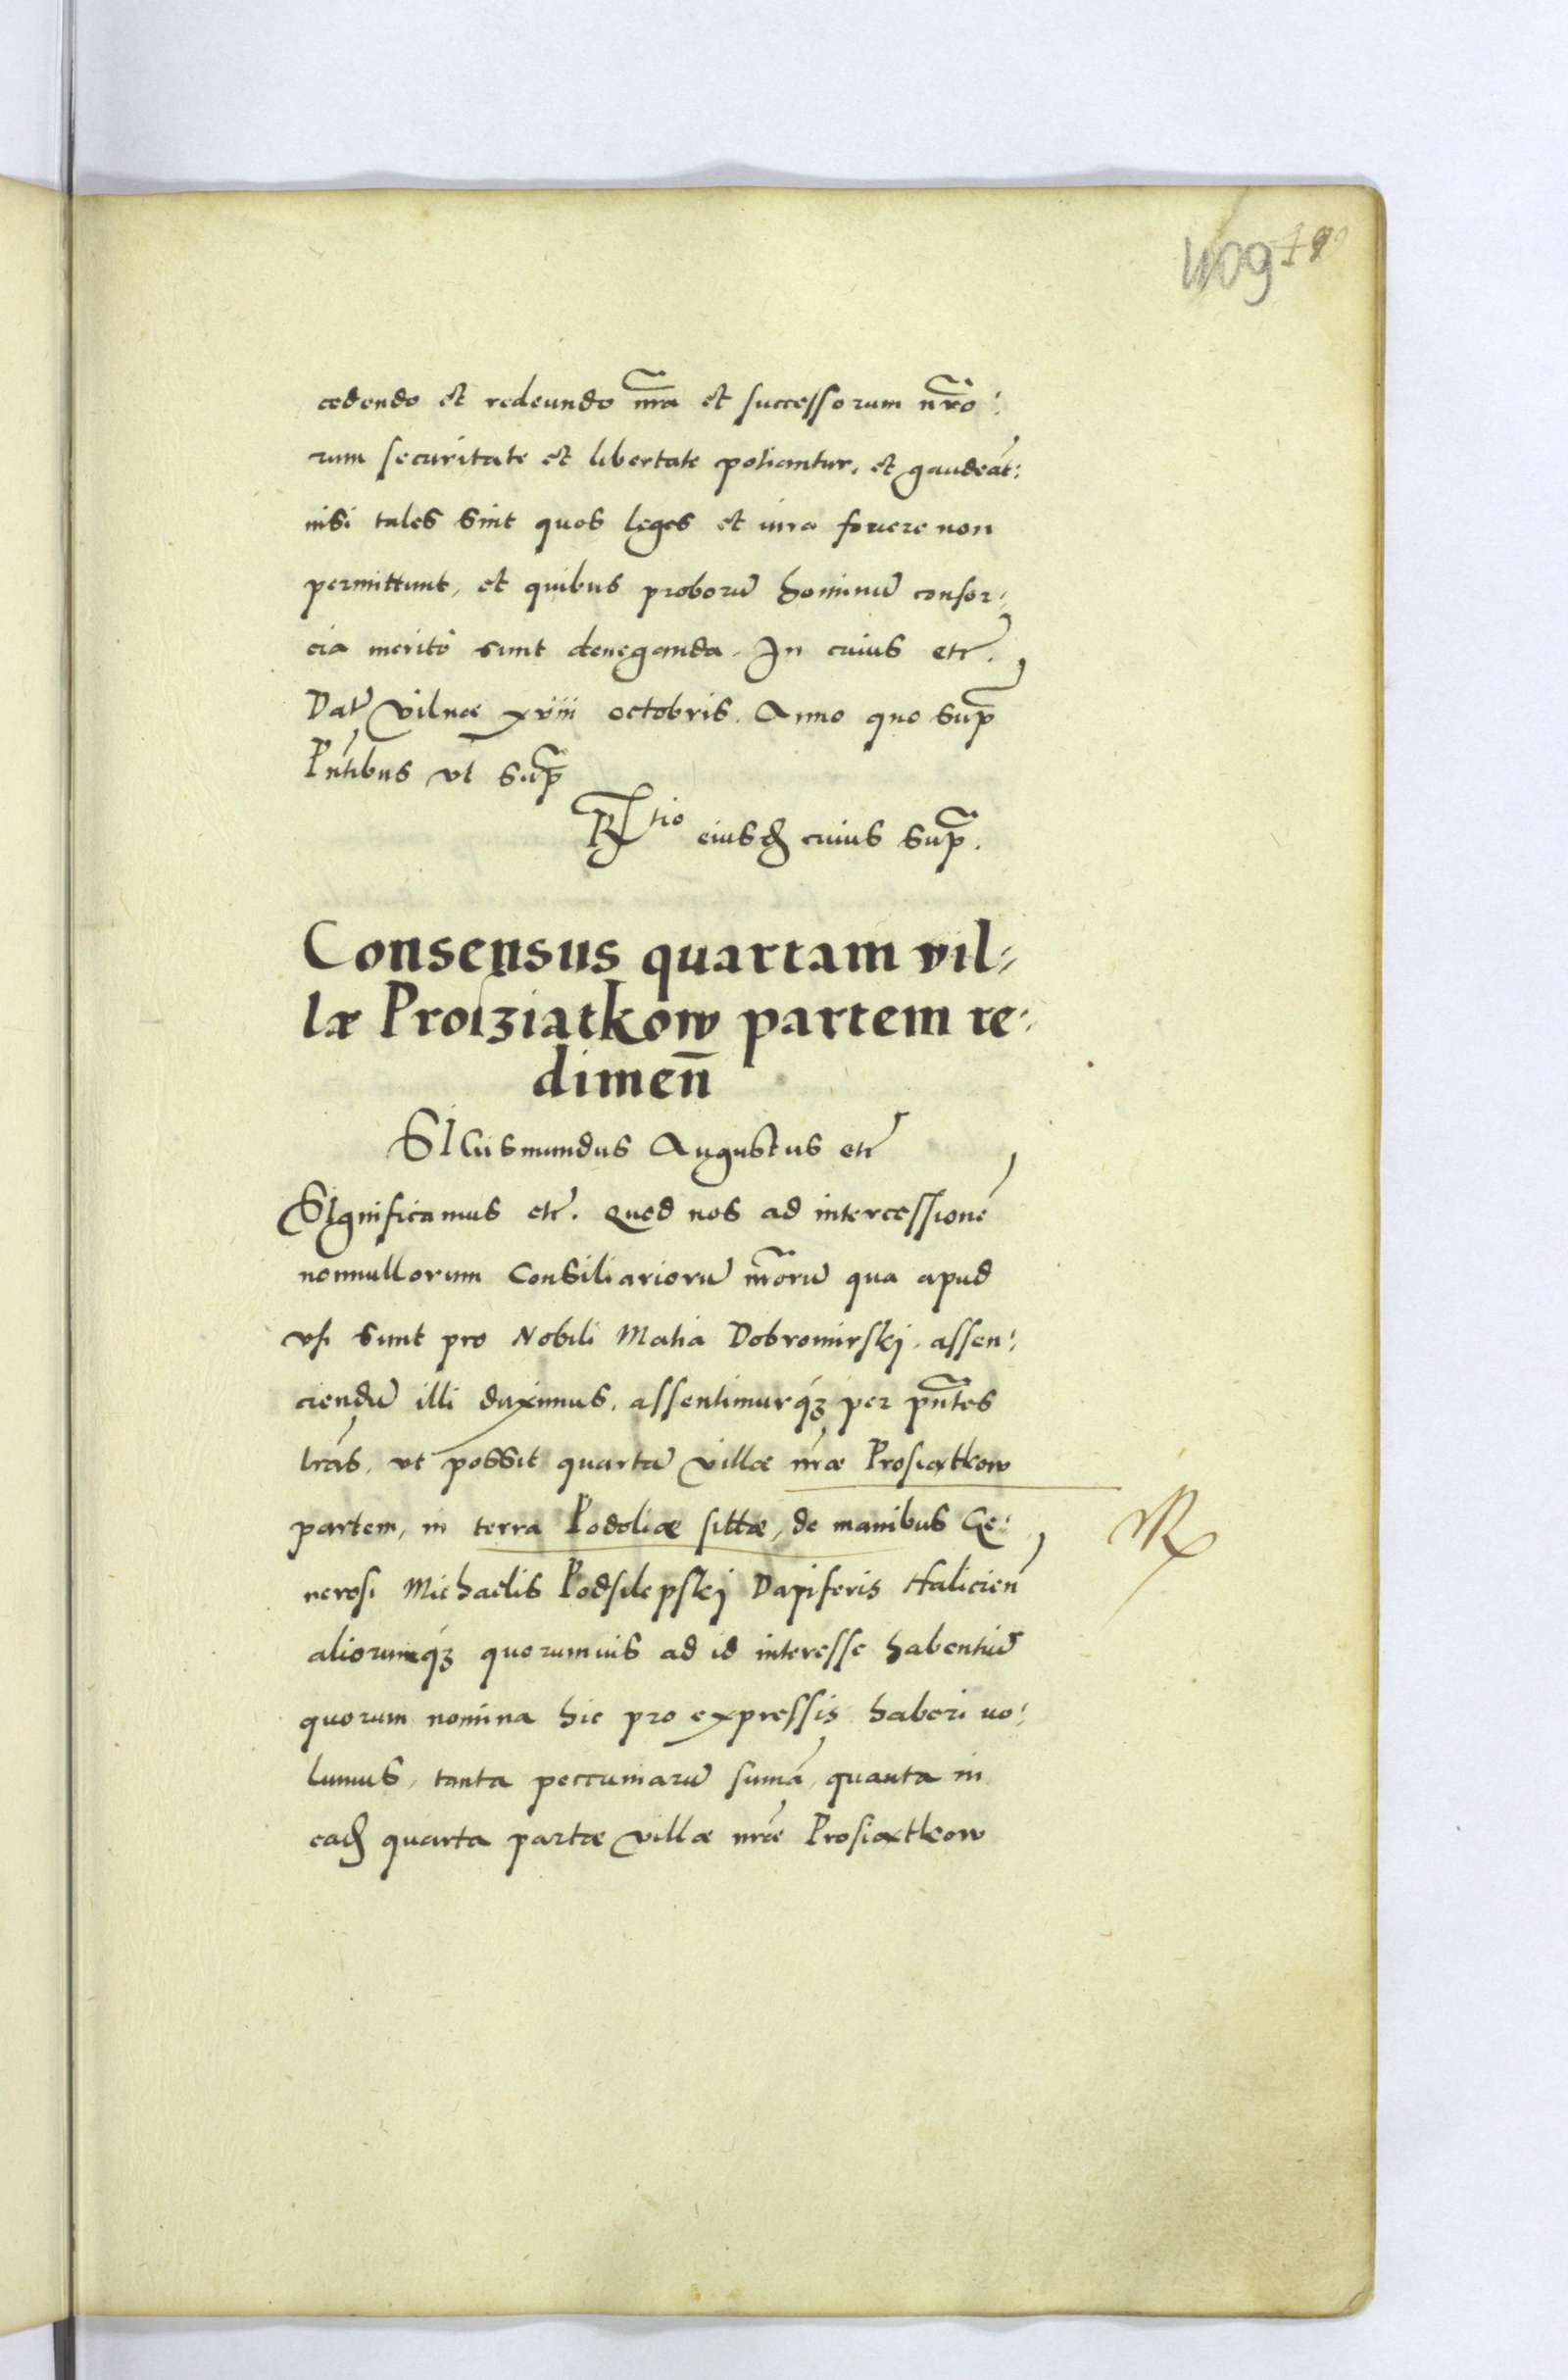 409
cedendo et redeundo nr̃a et successorum nr̃o:
rum securitate et libertate potiantur, et gaudeāt:
nisi tales sint quos leges et iura fovere non
permittunt, et quibus proborū hominū consor:
cia merito sunt deneganda. In cuius etc̃.
Dat̃ Vilnae xviii octobris. Anno quo sup̃
Pn̄tibus vt sup̃
R̃tio eiusd̃ cuius sup̃.
Consensus quartam vil:
læ Prosziatkow partem re:
dimen̄
SIGismundus Augustus etc̃
SIgnificamus etc̃. Quod nos ad intercessionē
nonnullorum Consiliariorū nr̃orū qua apud
usi sunt pro Nobili Matia Dobromirskj. assen:
ciendū illi duximus, assentimurq́ꝫ per pn̄tes
lr̃as, vt possit quartā villæ nr̃æ Prosiatkow
partem, in terra Podoliæ sittæ, de manibus Ge:
nerosi Michaelis Podfilepskj Dapiferis Halicien̄
aliorumq́ꝫ quorumuis ad id interesse habentiū
quorum nomina hic pro expressis haberi uo:
lumus, tanta peccuniarū sumā, quanta in
ead̃ quarta partæ villæ nr̃æ Prosiatkow